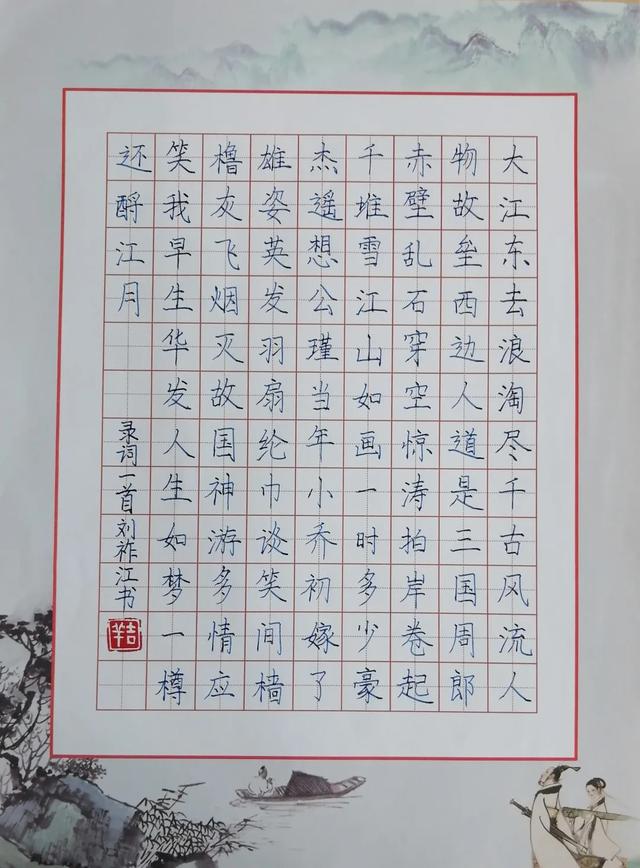 大江东去浪淘尽千古风流人
物故垒西边人道是三国周郎
赤壁乱石穿空惊涛拍岸卷起
千堆雪江山如画一时多少豪
杰遥想公瑾当年小乔初嫁了
雄姿英发羽扇纶巾谈笑间樯
橹灰飞烟灭故国神游多情应
笑我早生华发人生如梦一樽
还酹江月
录词一首刘祚江书